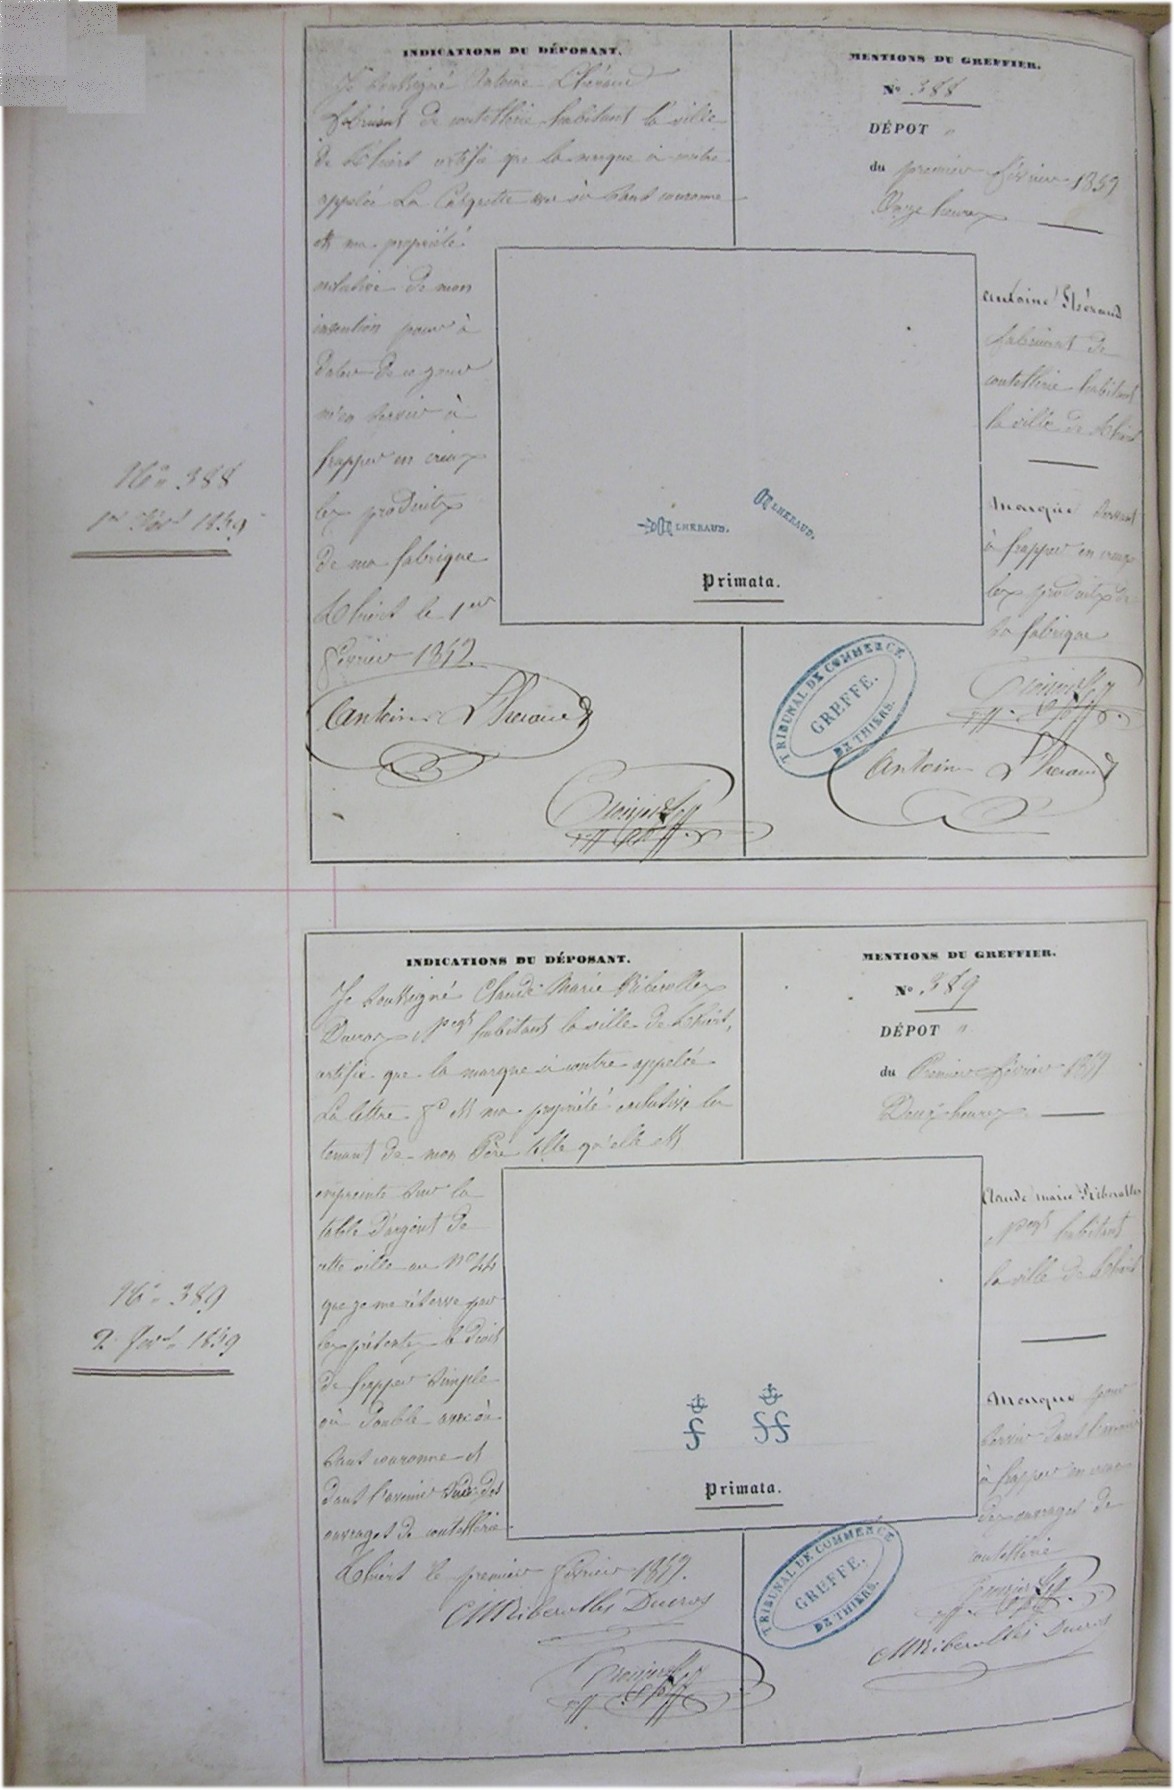 INDICATIONS DU DÉPOSANT.
Je soussigné Antoine Lhéraud
fabricant de coutellerie habitant la ville
de Thiers certifie que la marque ci contre
appelée La Casquette avec où sans couronne
est ma propriété
exclusive de mon
invention pour à
dater de ce jour
m'en servir à
frapper en creux
les produits
de ma fabrique
Thiers le 1er
février 1859.
Antoine Lheraud
MENTIONS DU GREFFIER.
N° 388
DÉPOT
du premier février 1859
Onze heures
Antoine Lhéraud
fabricant de
coutellerie habitant
la ville de Thiers
Marque servant
à frapper en creux
les produits de
sa fabrique
Antoine Lheraud
LHERAUD.
LHERAUD.
Primata.
TRIBUNAL DE COMMERCE
GREFFE.
DE THIERS.
N° 388
1er Fév. 1859
INDICATIONS DU DÉPOSANT.
Je soussigné Claude Marie Riberolles
Ducros, habitant la ville de Thiers,
certifie que la marque ci contre appelée
La lettre est ma propriété exclusive la
tenant de mon Père telle qu'elle est
empreinte sur la
table d'argent de
cette ville au N° 44
que je me réserve par
les présentes le droit
de frapper simple
où double avec où
sans couronne et
dans l'avenir sur des
ouvrages de coutellerie
Thiers le premier février 1859.
CMRiberolles Ducros
MENTIONS DU GREFFIER.
N° 389
DÉPOT
du Premier février 1859
Deux heures
Claude marie Riberolles
habitant
la ville de Thiers
Marque pour
servir dans l'avenir
à frapper en creux
des ouvrages de
coutellerie
CMRiberolles Ducros
Primata.
TRIBUNAL DE COMMERCE
GREFFE.
DE THIERS.
N° 389
2 Fév. 1859